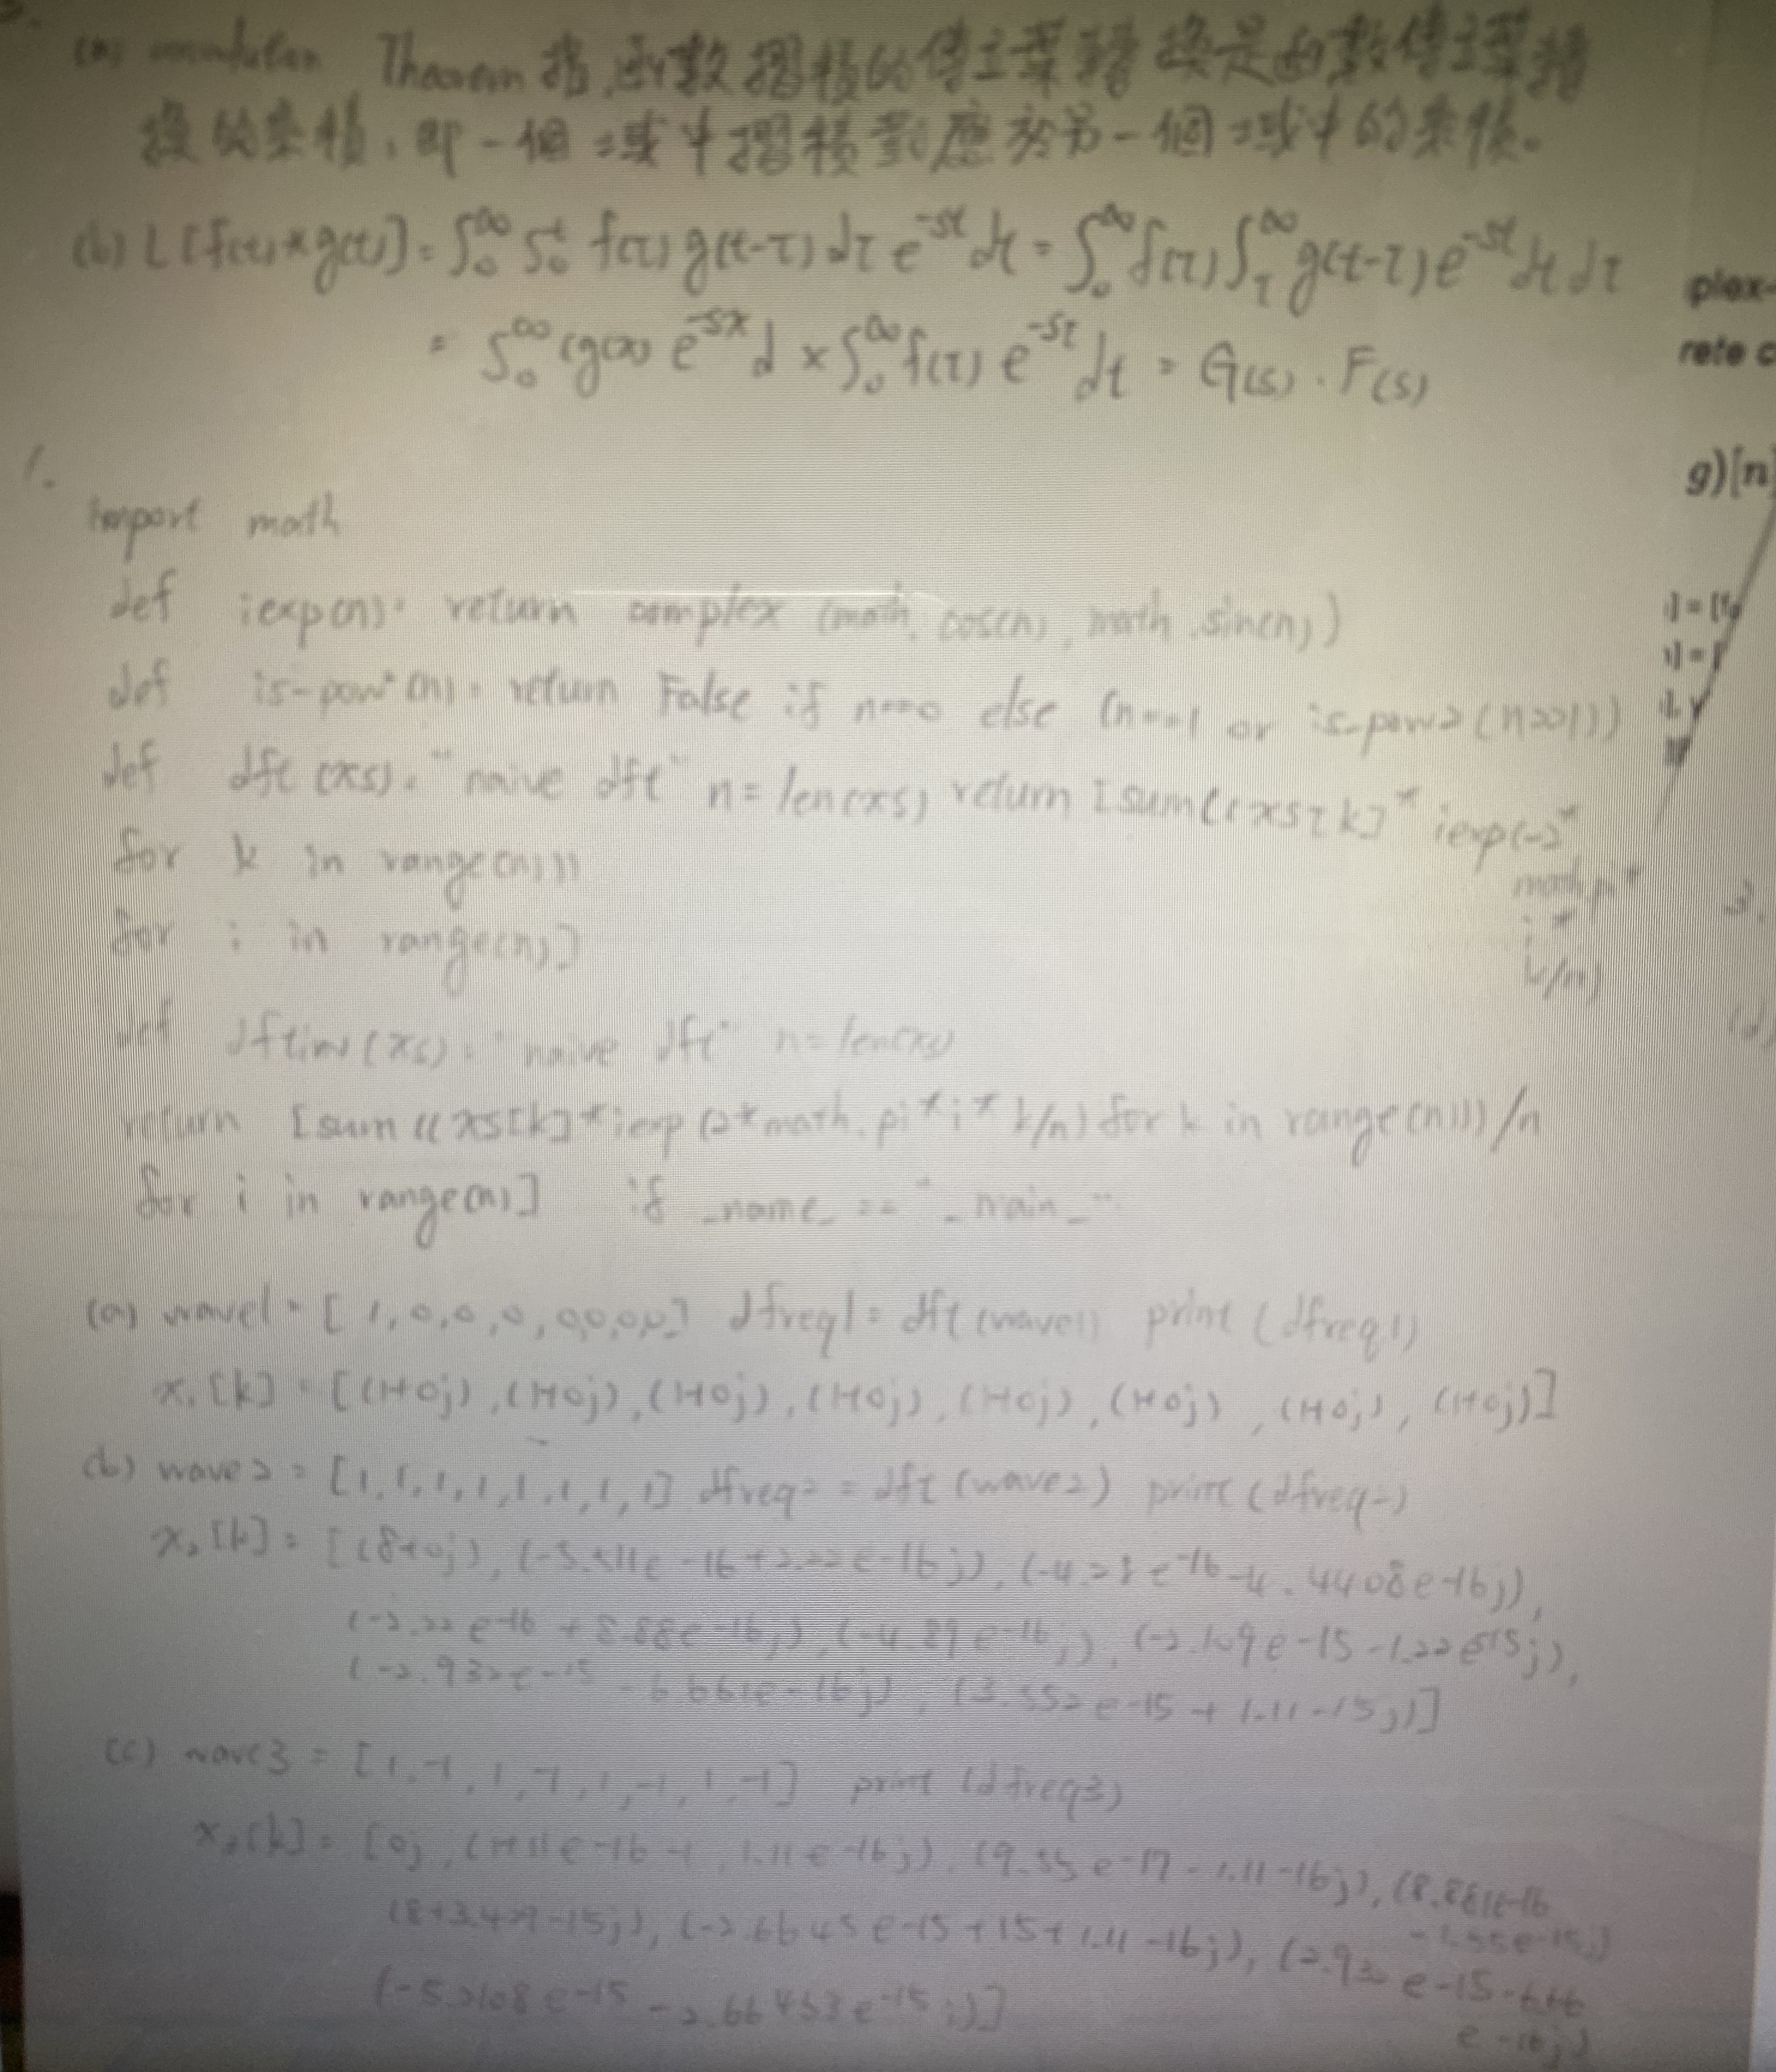 (a) Theorem 指,函數摺積的傅立葉轉換是函數傅立葉轉
換的乘積,即一個域中摺積對應於另一個域中的乘積。
(b) L[f(t)*g(t)] = ∫₀^∞ ∫₀^t f(τ) g(t-τ) dτ e^{-st} dt = ∫₀^∞ f(τ) ∫_τ^∞ g(t-τ) e^{-st} dt dτ
= ∫₀^∞ (g(x) e^{-sx} d × ∫₀^∞ f(τ) e^{-sτ} dt = G(s) · F(s)
plex-
rete c
g)[n]
1.
import math
def iexp(n): return complex (math. cos(n), math .sin(n))
def return False if n==0 else (n==1 or is-pow2 (n>>1))
def dft (xs): "naive dft" n = len(xs) return [sum((xs[k] * iexp(-2*
math.pi*
i *
k/n)
for k in range(n)))
for i in range(n)]
def dftinv (xs): "naive dft" n = len(xs)
return [sum ((xs[k]*iexp (2*math.pi*i*k/n) for k in range(n)))/n
for i in range(n)] if _name_ == "_main_"
3.
(a) wave1 = [1,0,0,0,0,0,0,0] dfreq1 = dft (wave1) print (dfreq1)
x₁[k] = [(1+0j), (1+0j), (1+0j), (1+0j), (1+0j), (1+0j), (1+0j), (1+0j)]
(b) wave2 = [1,1,1,1,1,1,1,1] dfreq2 = dft (wave2) print (dfreq2)
x₂[k] = [(8+0j), (-4.4408e-16j)),
(-2.22e-16 + 8.88e-16j), (-4.89e-16j),
(-2.932e-15 - 6.661e-16j), (3.552e-15 + 1.11-15j)]
(c) wave3 = [1,-1,1,-1,1,-1,1,-1] print (dfreq3)
x₃[k] = [0j, 1.11e-16j), (9.55e-17 - 1.11-16j), (8.881e-16
-1.55e-15j)
(8+3.429-15j), (-2.6645e-15+15+1.11-16j),
e-16j)
(-5.2108e-15 - 2.66453e-15j)]